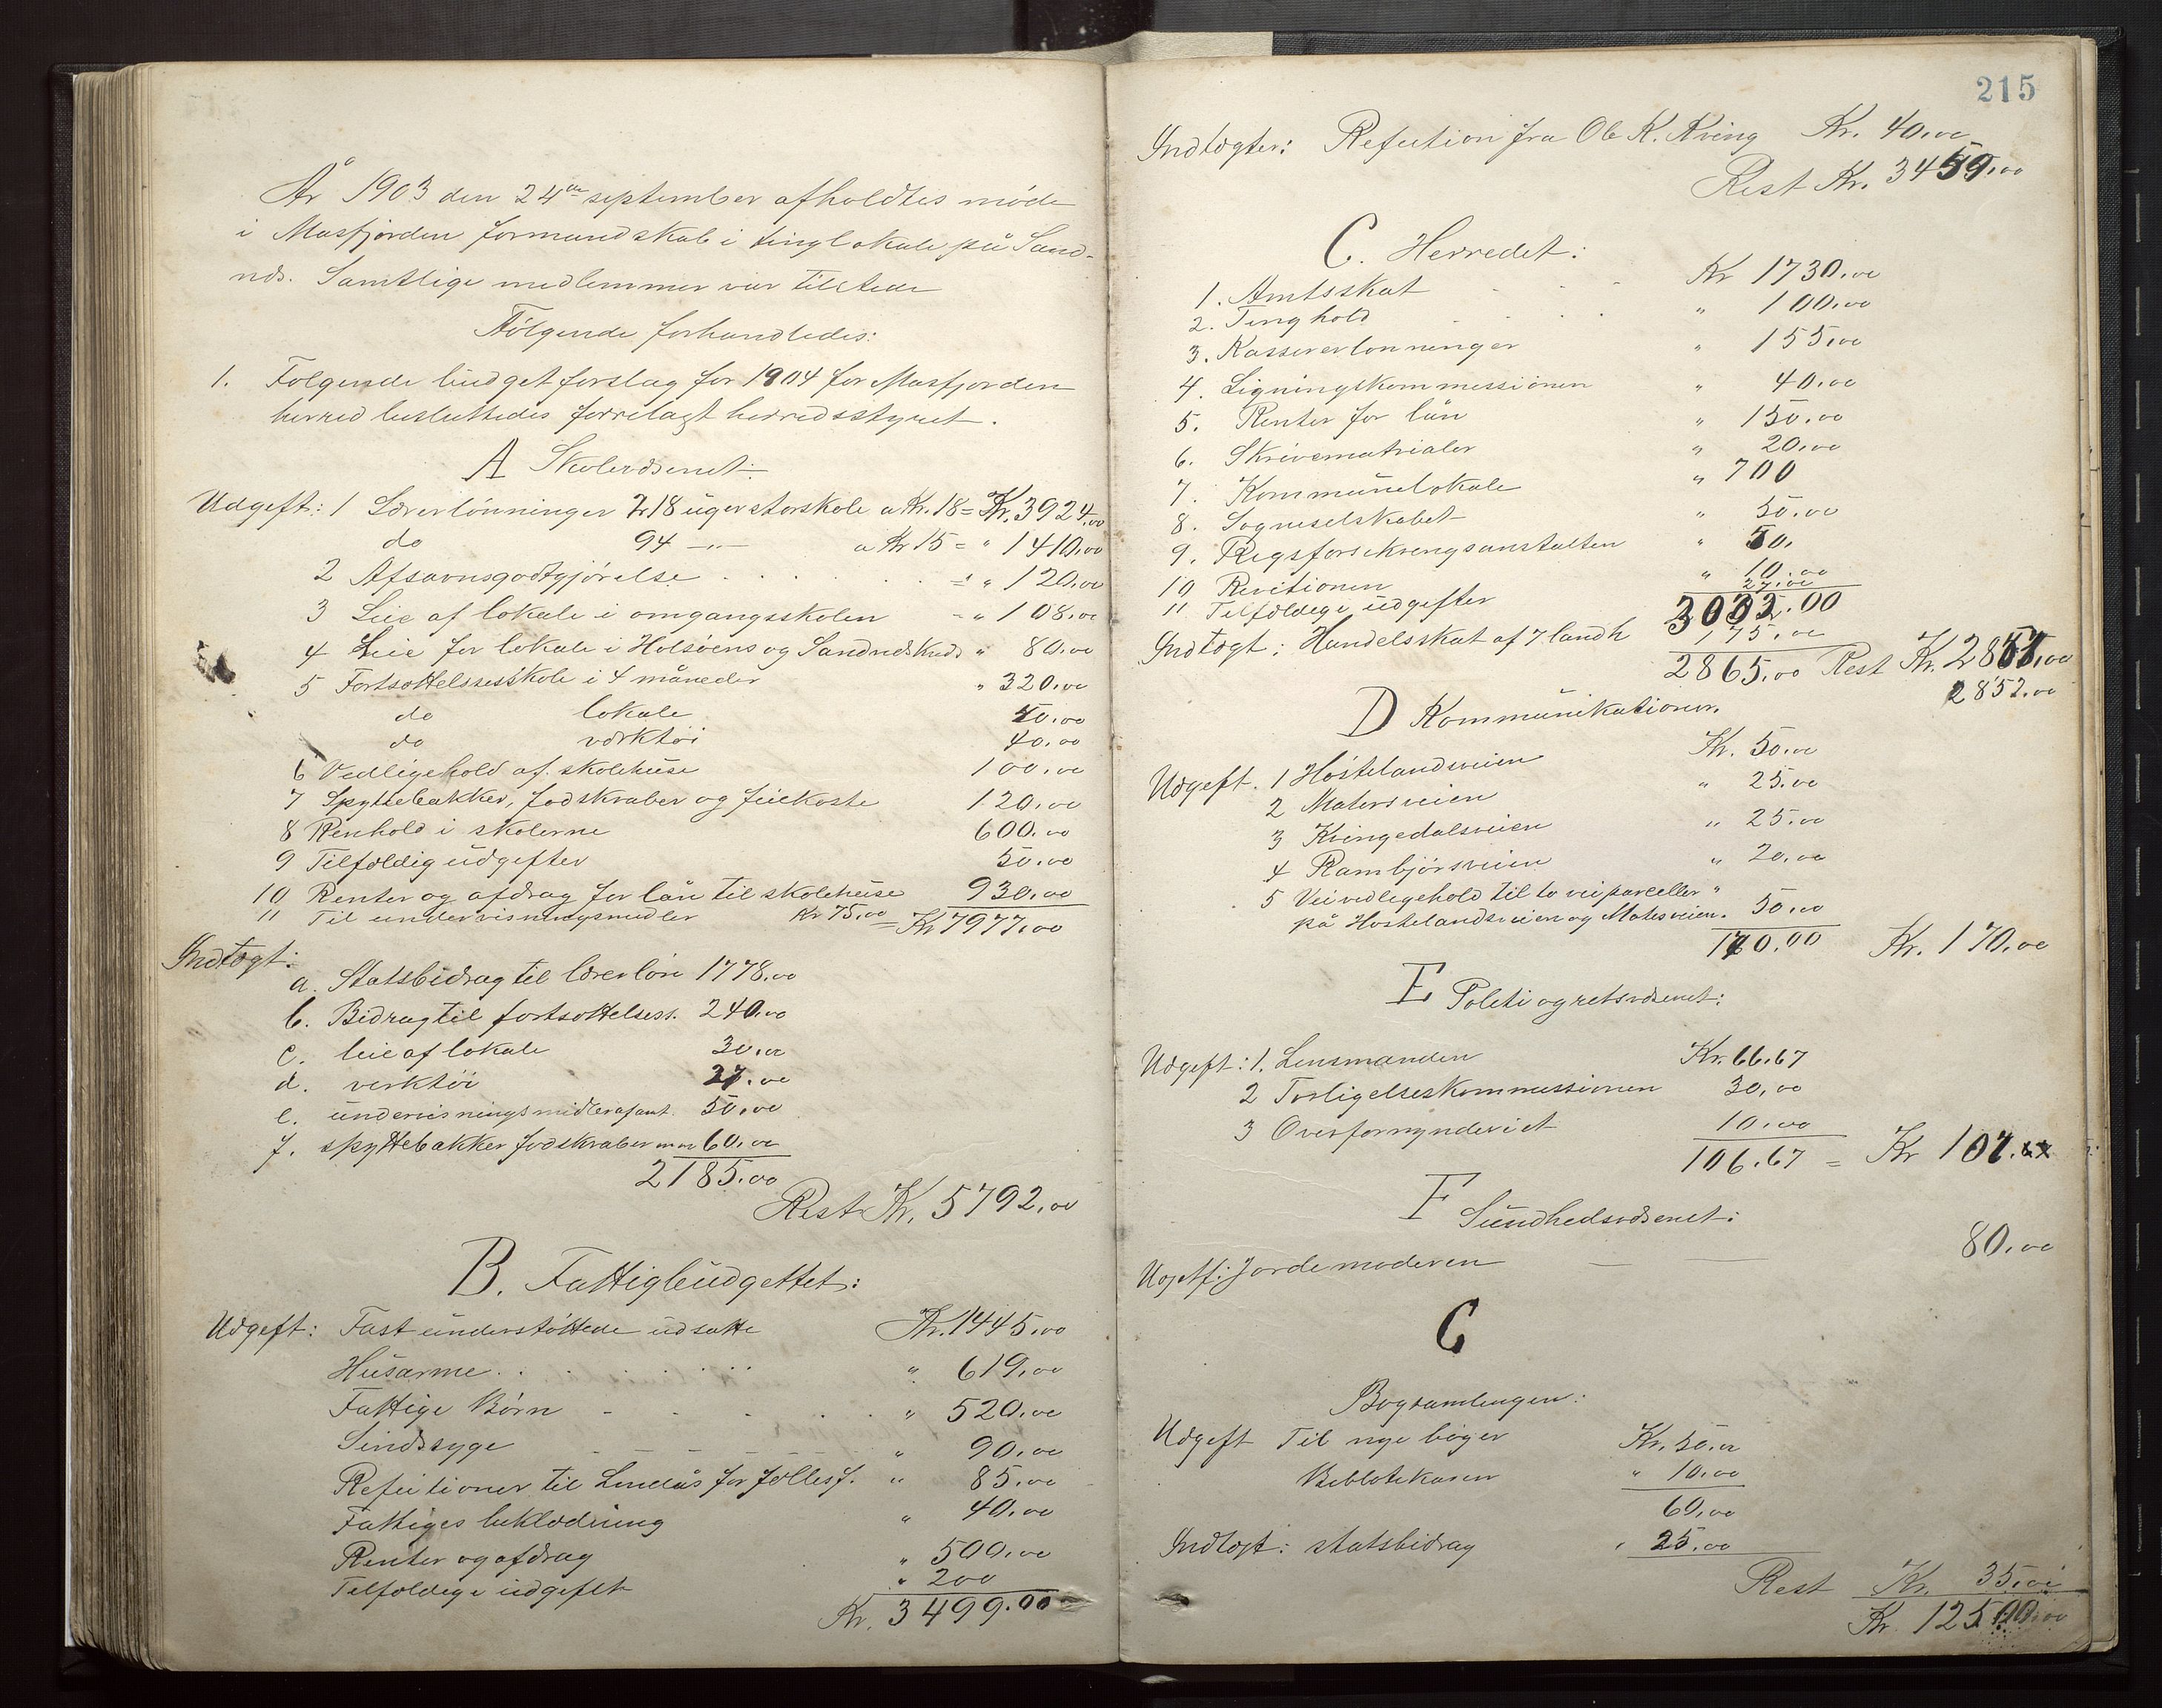 År 1903 den 24de september afholdtes møde
i Masfjorden formandskab i tinglokale på Sand-
næs. Samtlige medlemmer var tilstede
Følgende forhandledes:
1. Følgende budgetforslag for 1904 for Masfjorden
herred besluttedes forrelagt herredsstyret.
A Skolevæsenet:
Udgeft: 1 Lærerlønninger 218 uger storskole a Kr. 18 = Kr. 3924,00
do 94 -"- a Kr 15 = " 1410,00
2 Afsavnsgodtgjørelse . . . . . = " 120,00
3 Leie af lokale i omgangsskolen - " 108,00
4 Leie for lokale i Holsøens og Sandnæs Kreds " 80,00
5 Fortsættelsesskole i 4 måneder " 320,00
do lokale 50,00
do værktøi 40,00
6 Vedligehold af skolehuse 100,00
7 Spyttebakker, fodskraber og feiekoste 120,00
8 Renhold i skolerne 600,00
9 Tilfældig udgifter 50,00
10 Renter og afdrag for lån til skolehuse 930,00
11 Til undervisningsmidler Kr 75,00 = Kr 7977,00
Indtægt:
a. Statsbidrag til lærerløn 1778,00
b. Bidrag til fortsættelsess. 240,00
c. leie af lokale 30,00
d. verktøi 27,00
e. undervisningsmidler af amt. 50,00
f. spyttebakker fodskraber m m 60,00
2185,00
Rest Kr. 5792,00
B. Fattigbudgettet:
Udgeft: Fast understøttede udsatte Kr. 1445,00
Husarme . . . . . . " 619,00
Fattige Børn - - - . . . " 520,00
Sindssyge - - - - - - " 90,00
Refutioner til Lindås for fællesf. " 85,00
Fattiges beklædning " 40,00
Renter og afdrag " 500,00
Tilfældige udgeft " 200
Kr. 3499.00
215
Indtægter: Refution fra Ole K. Kving Kr. 40,00
Rest Kr. 3459,00
C. Herredet:
1. Amtsskat - - - Kr 1730,00
2. Tinghold - . . . " 100,00
3. Kassererlønninger " 155,00
4. Ligningskommessionen " 40,00
5. Renter for lån " 150,00
6. Skrivematrialer " 20,00
7. Kommunelokale " 700
8. Sogneselskabet " 50,00
9. Rigsforsikringsanstalten " 50,
10 Revitionen " 10,00
11 Telfældige udgefter 27,00
3032.00
Indtægt: Handelsskat af 7 landh 175,00
2865,00 Rest Kr. 2857,00
2852,00
D Kommunikationen.
Udgeft. 1 Høstelandsveien Kr. 50,00
2 Matersveien " 25,00
3 Kvingedalsveien " 25,00
4 Rambjørsveien " 20,00
5 Veivedligehold til to veiparceller "
på Høstelandsveien og Matresveien. 50,00
170.00 Kr. 170,00
E Politi og retsvæsenet:
Udgeft: 1. Lensmanden Kr. 66.67
2 Forligelseskommissionen 30,00
3 Overformynderiet 10,00
106.67 = Kr 107.
F Sundhedsvæsenet:
Udgeft: Jordemoderen — — 80,00
G
Bogsamlingen:
Udgeft Til nye bøger Kr. 50,00
Bebliotekaren " 10,00
60,00
Indtægt: statsbidrag " 25,00
Rest Kr. 35,00
Kr. 12500,00